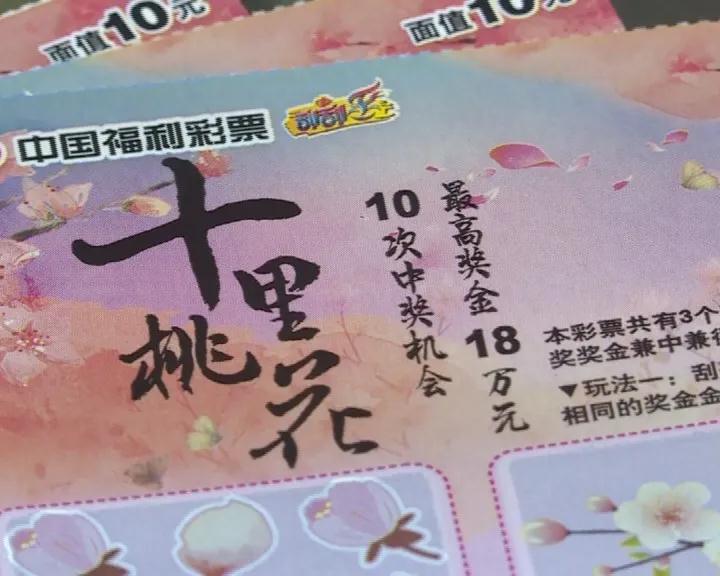 面值10元
面值10元
中国福利彩票
刮刮乐
十里桃花
10次中奖机会
最高奖金18万元
本彩票共有3个
奖奖金兼中兼
▼玩法一：刮
相同的奖金金